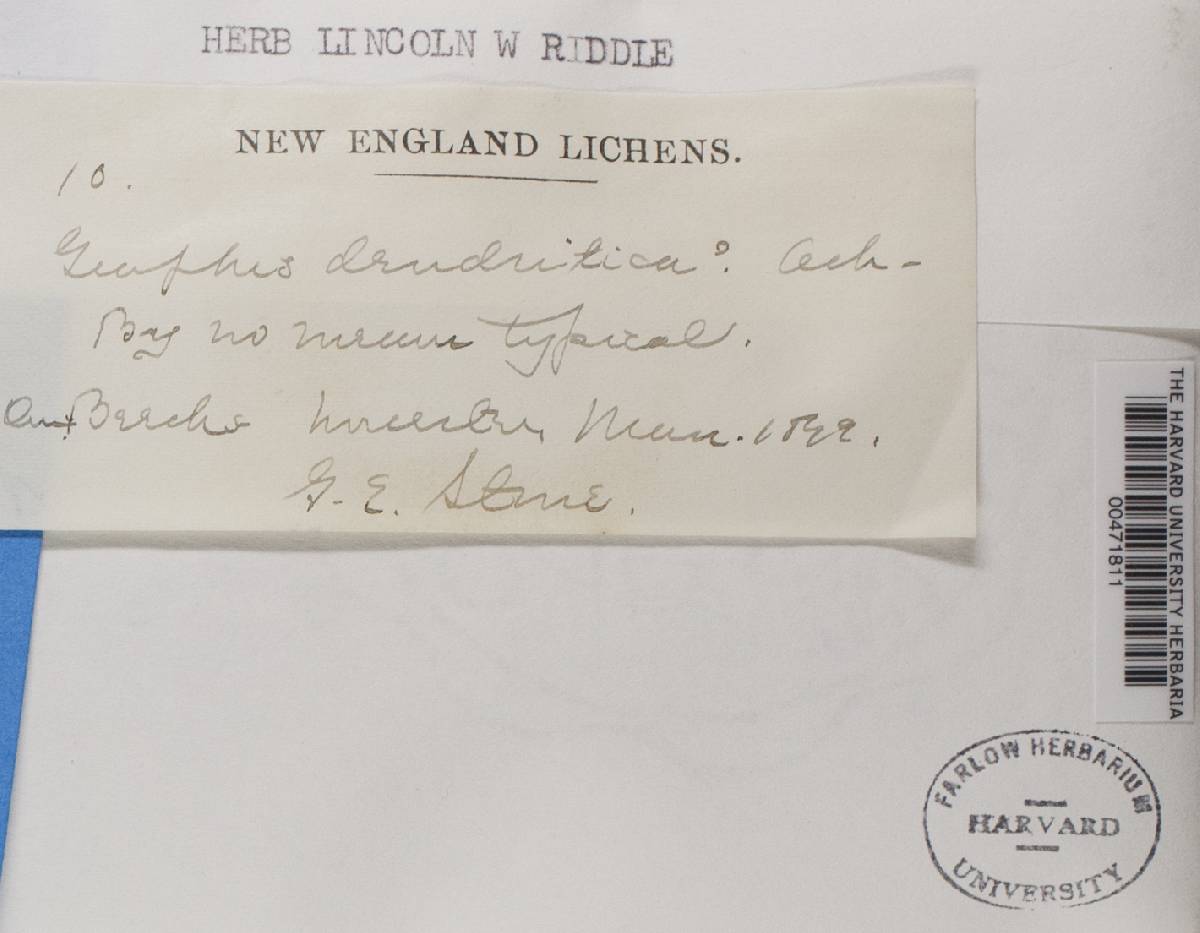 HERB LINCOLN W RIDDLE
NEW ENGLAND LICHENS.
10.
Graphis dendritica? Ach-
By no means typical.
On Beech Worcester, Mass. 1892.
G. E. Stone.
THE HARVARD UNIVERSITY HERBARIA
00471811
FARLOW HERBARIUM
HARVARD
UNIVERSITY